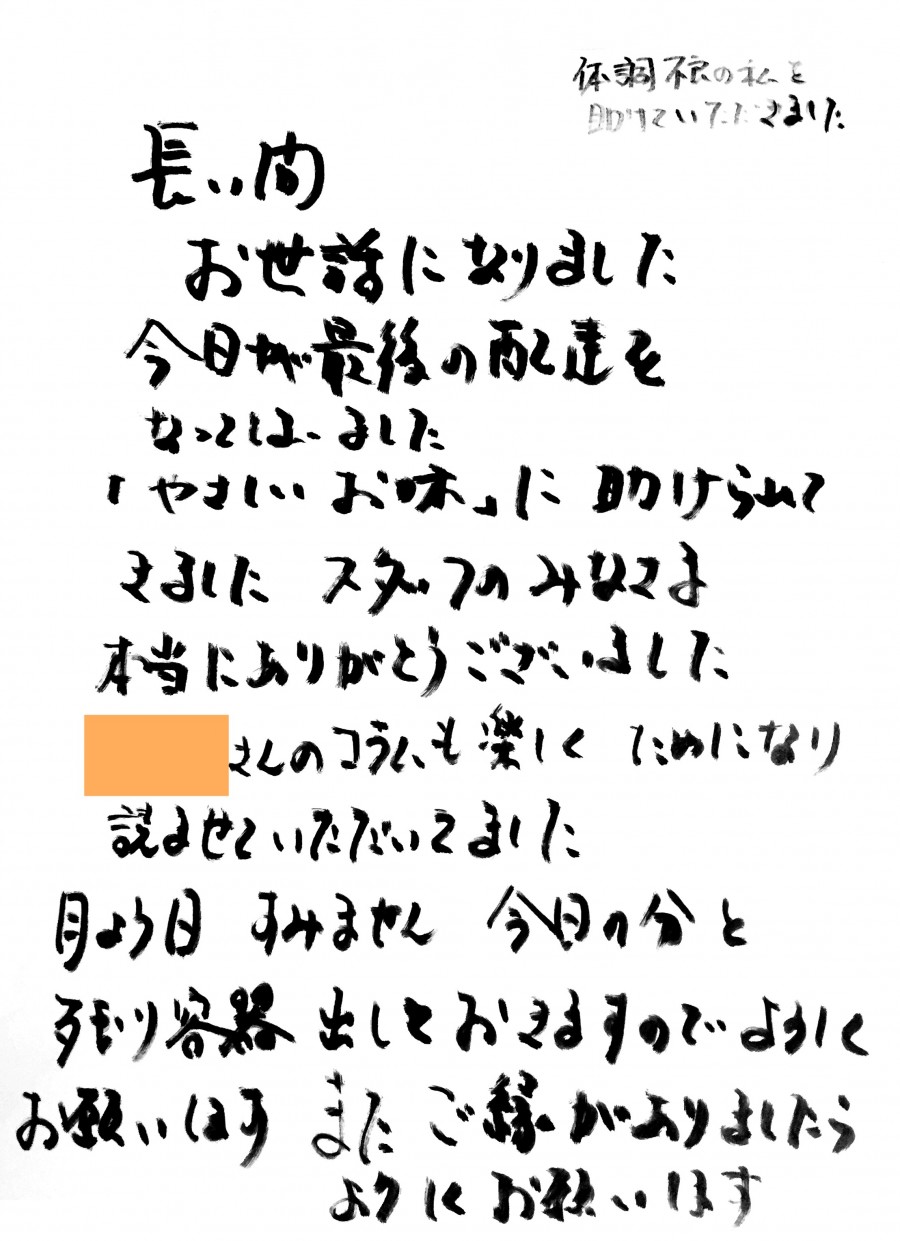 体調不良の私を
助けていただきました
長い間
お世話になりました
今日が最後の配達と
なってしまいました
「やさしい お味」に 助けられて
きました スタッフの みなさま
本当にありがとうございました
さんのコラムも楽しく ためになり
読ませていただいてました
月よう日 すみません 今日の分と
残り容器 出しておきますので よろしく
お願いします また ご縁がありましたら
よろしく お願いします